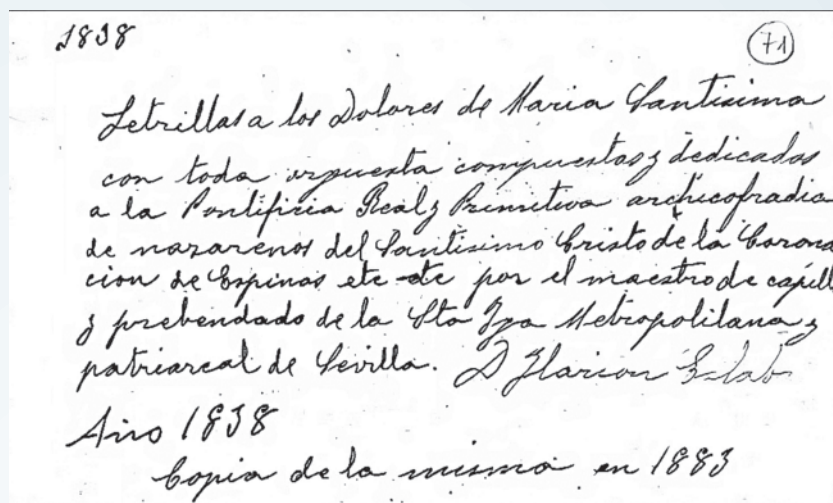 1838
71
Letrillas a los Dolores de Maria Santisima
con toda orquesta compuestas y dedicadas
a la Pontificia Real y Primitiva archicofradia
de nazarenos del Santisimo Cristo de la Corona
cion de Espinas etc etc por el maestro de capill
y prebendado de la Sta Yga Metropolitana y
patriarcal de Sevilla. D Hilarion Eslab
Año 1838
Copia de la misma en 1883